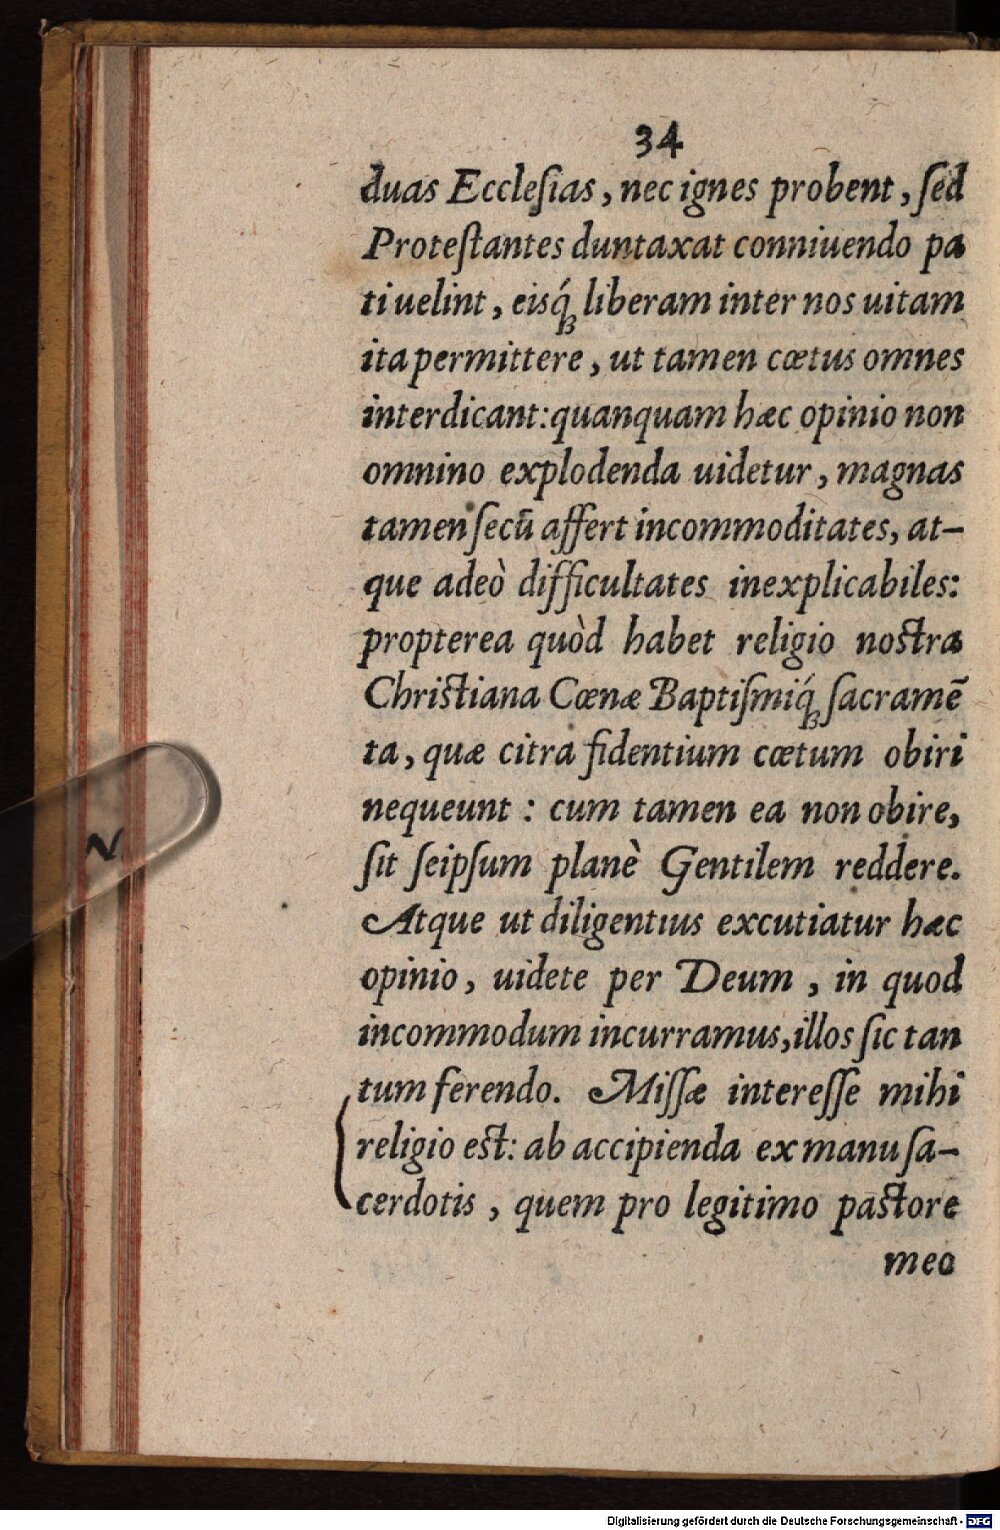 34
duas Eccleſias, nec ignes probent, ſed
Proteſtantes duntaxat conniuendo pa
ti uelint, eisq́ꝫ liberam inter nos uitam
ita permittere, ut tamen cœtus omnes
interdicant: quanquam hæc opinio non
omnino explodenda uidetur, magnas
tamen ſecū affert incommoditates, at-
que adeò difficultates inexplicabiles:
propterea quòd habet religio noſtra
Chriſtiana Cœnæ Baptiſmiq́ꝫ ſacramē
ta, quæ citra fidentium cœtum obiri
nequeunt: cum tamen ea non obire,
ſit ſeipſum planè Gentilem reddere.
Atque ut diligentius excutiatur hæc
opinio, uidete per Deum, in quod
incommodum incurramus, illos ſic tan
tum ferendo. Miſſæ intereſſe mihi
religio eſt: ab accipienda ex manu ſa-
cerdotis, quem pro legitimo paſtore
meo
Digitalisierung gefördert durch die Deutsche Forschungsgemeinschaft - DFG